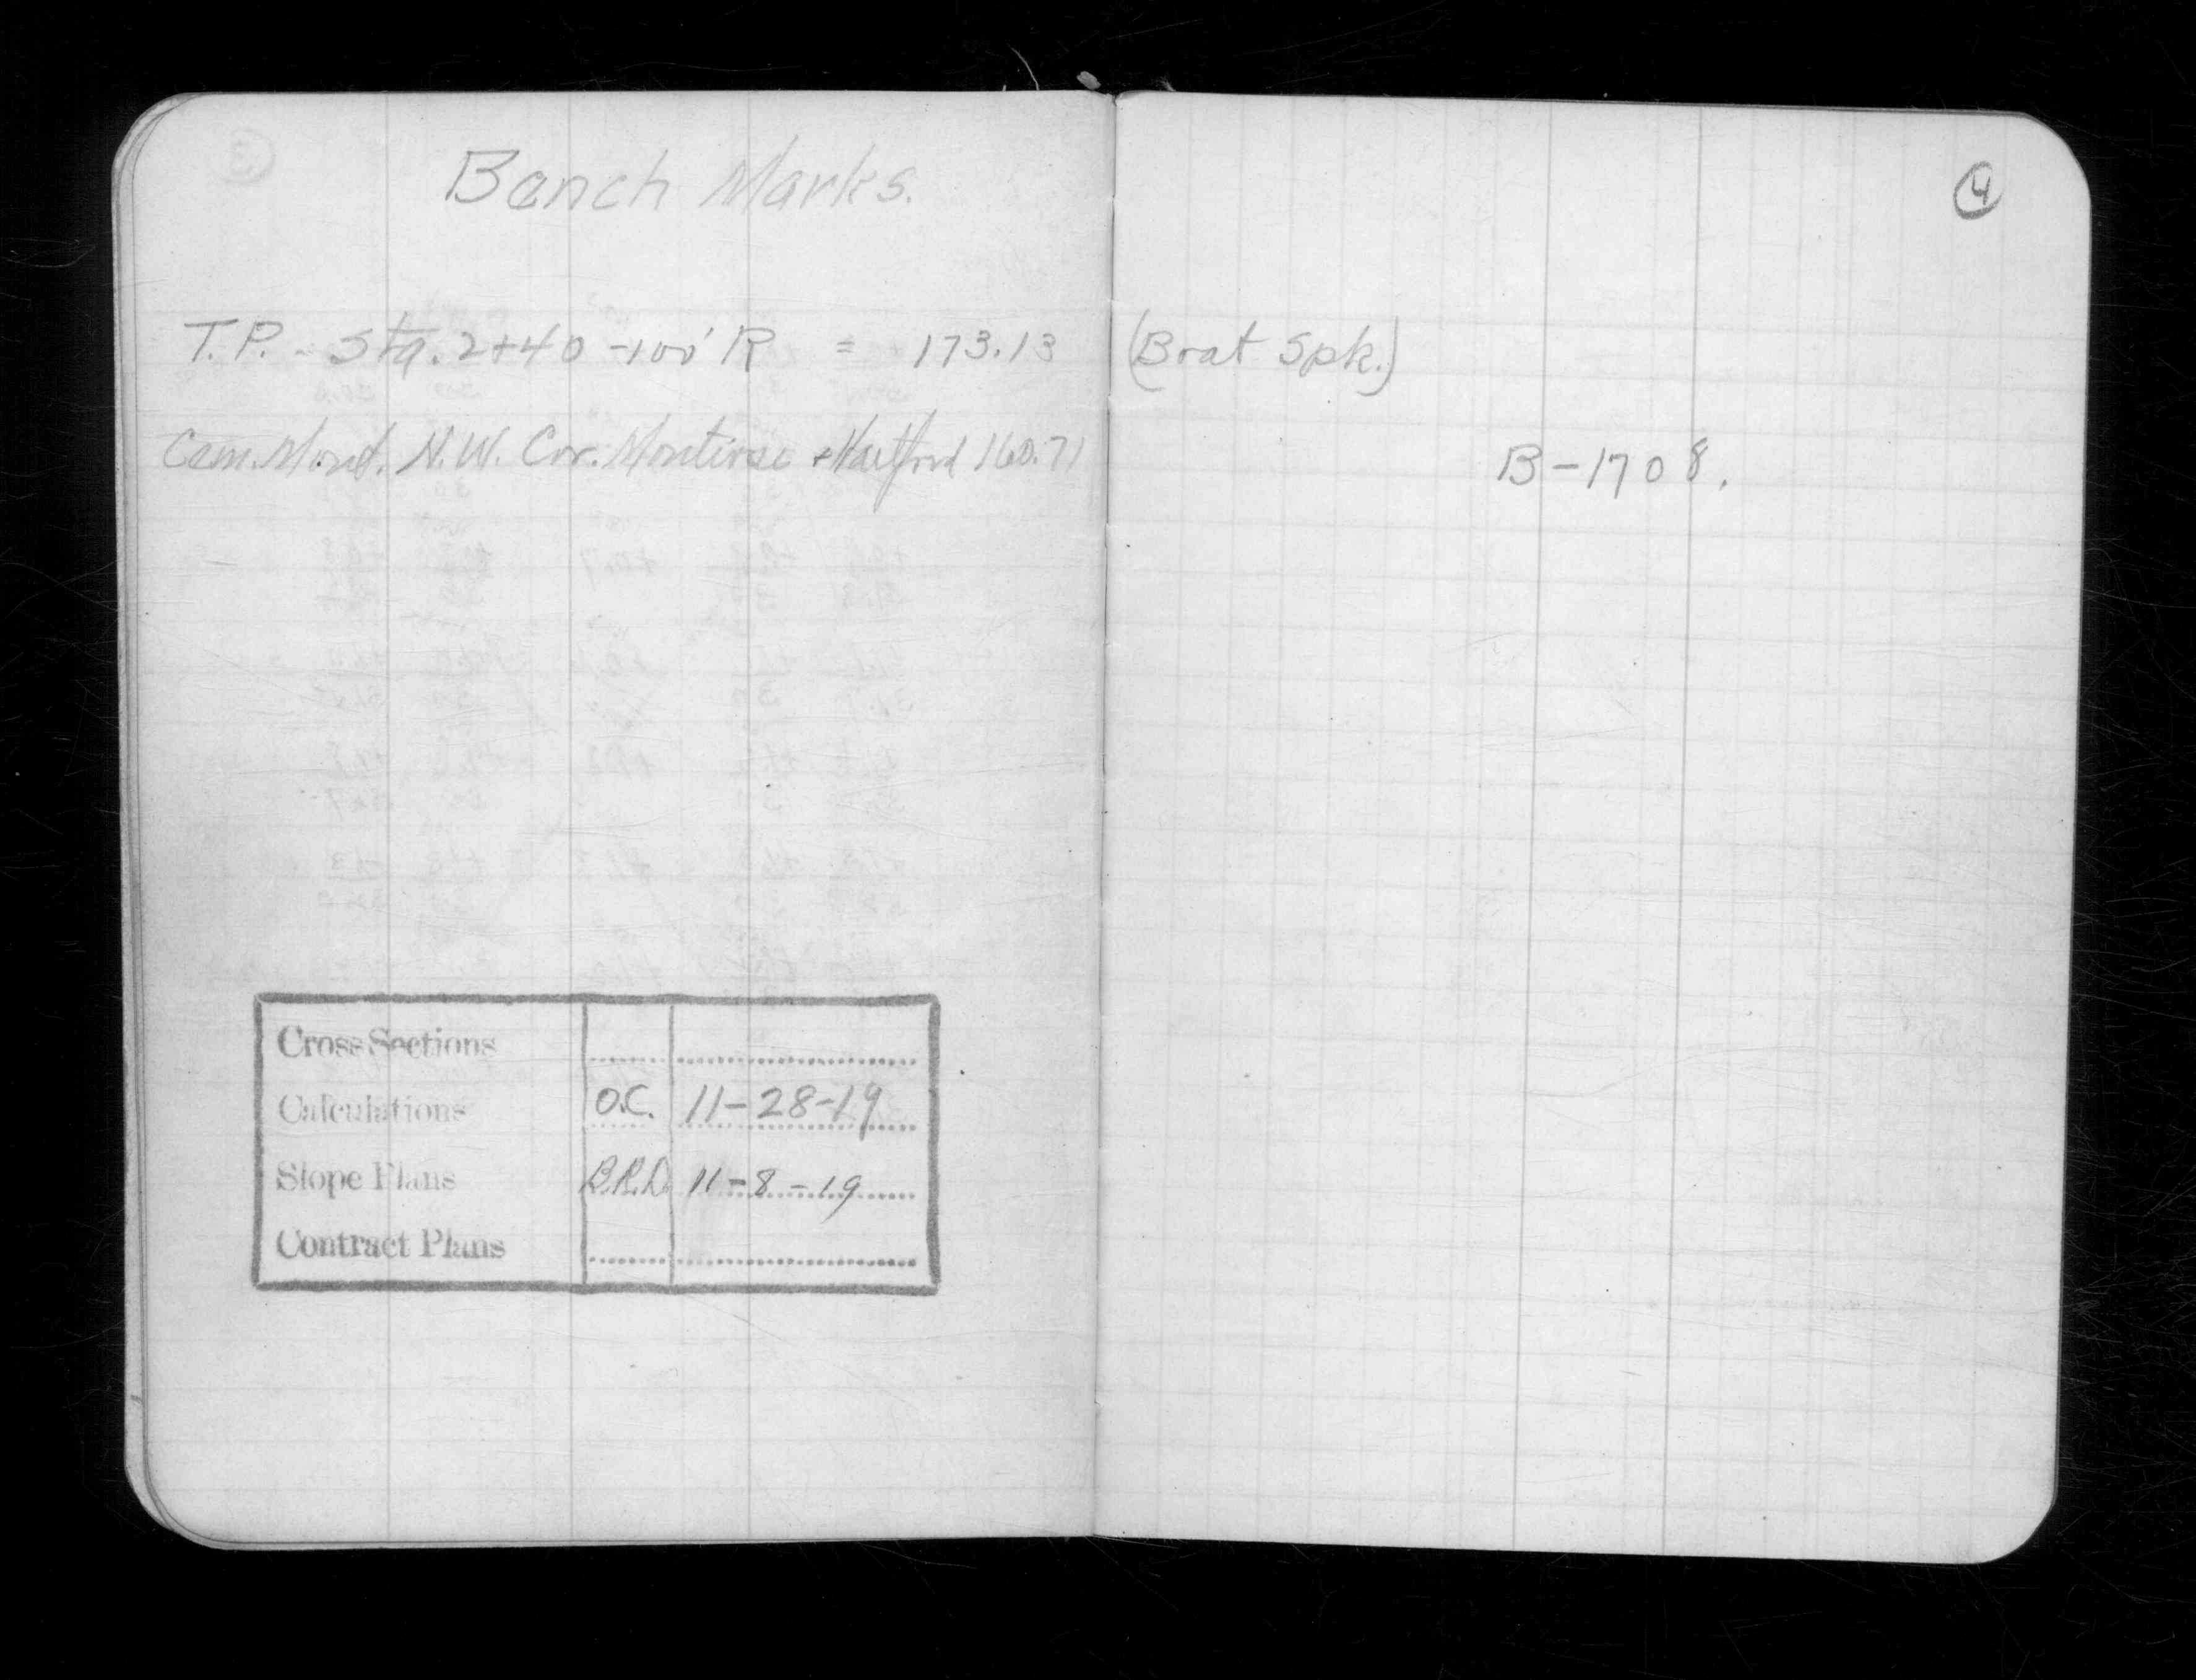 Bench Marks.
④
T.P. - Sta. 2+40 - 100' R = 173.13 (Boat Spk.)
Cem. Mond. N.W. Cor. Montrose + Hartford 160.71
B-1708.
Cross Sections
Calculations O.C. 11-28-19
Slope Plans B.R.D. 11-8-19
Contract Plans